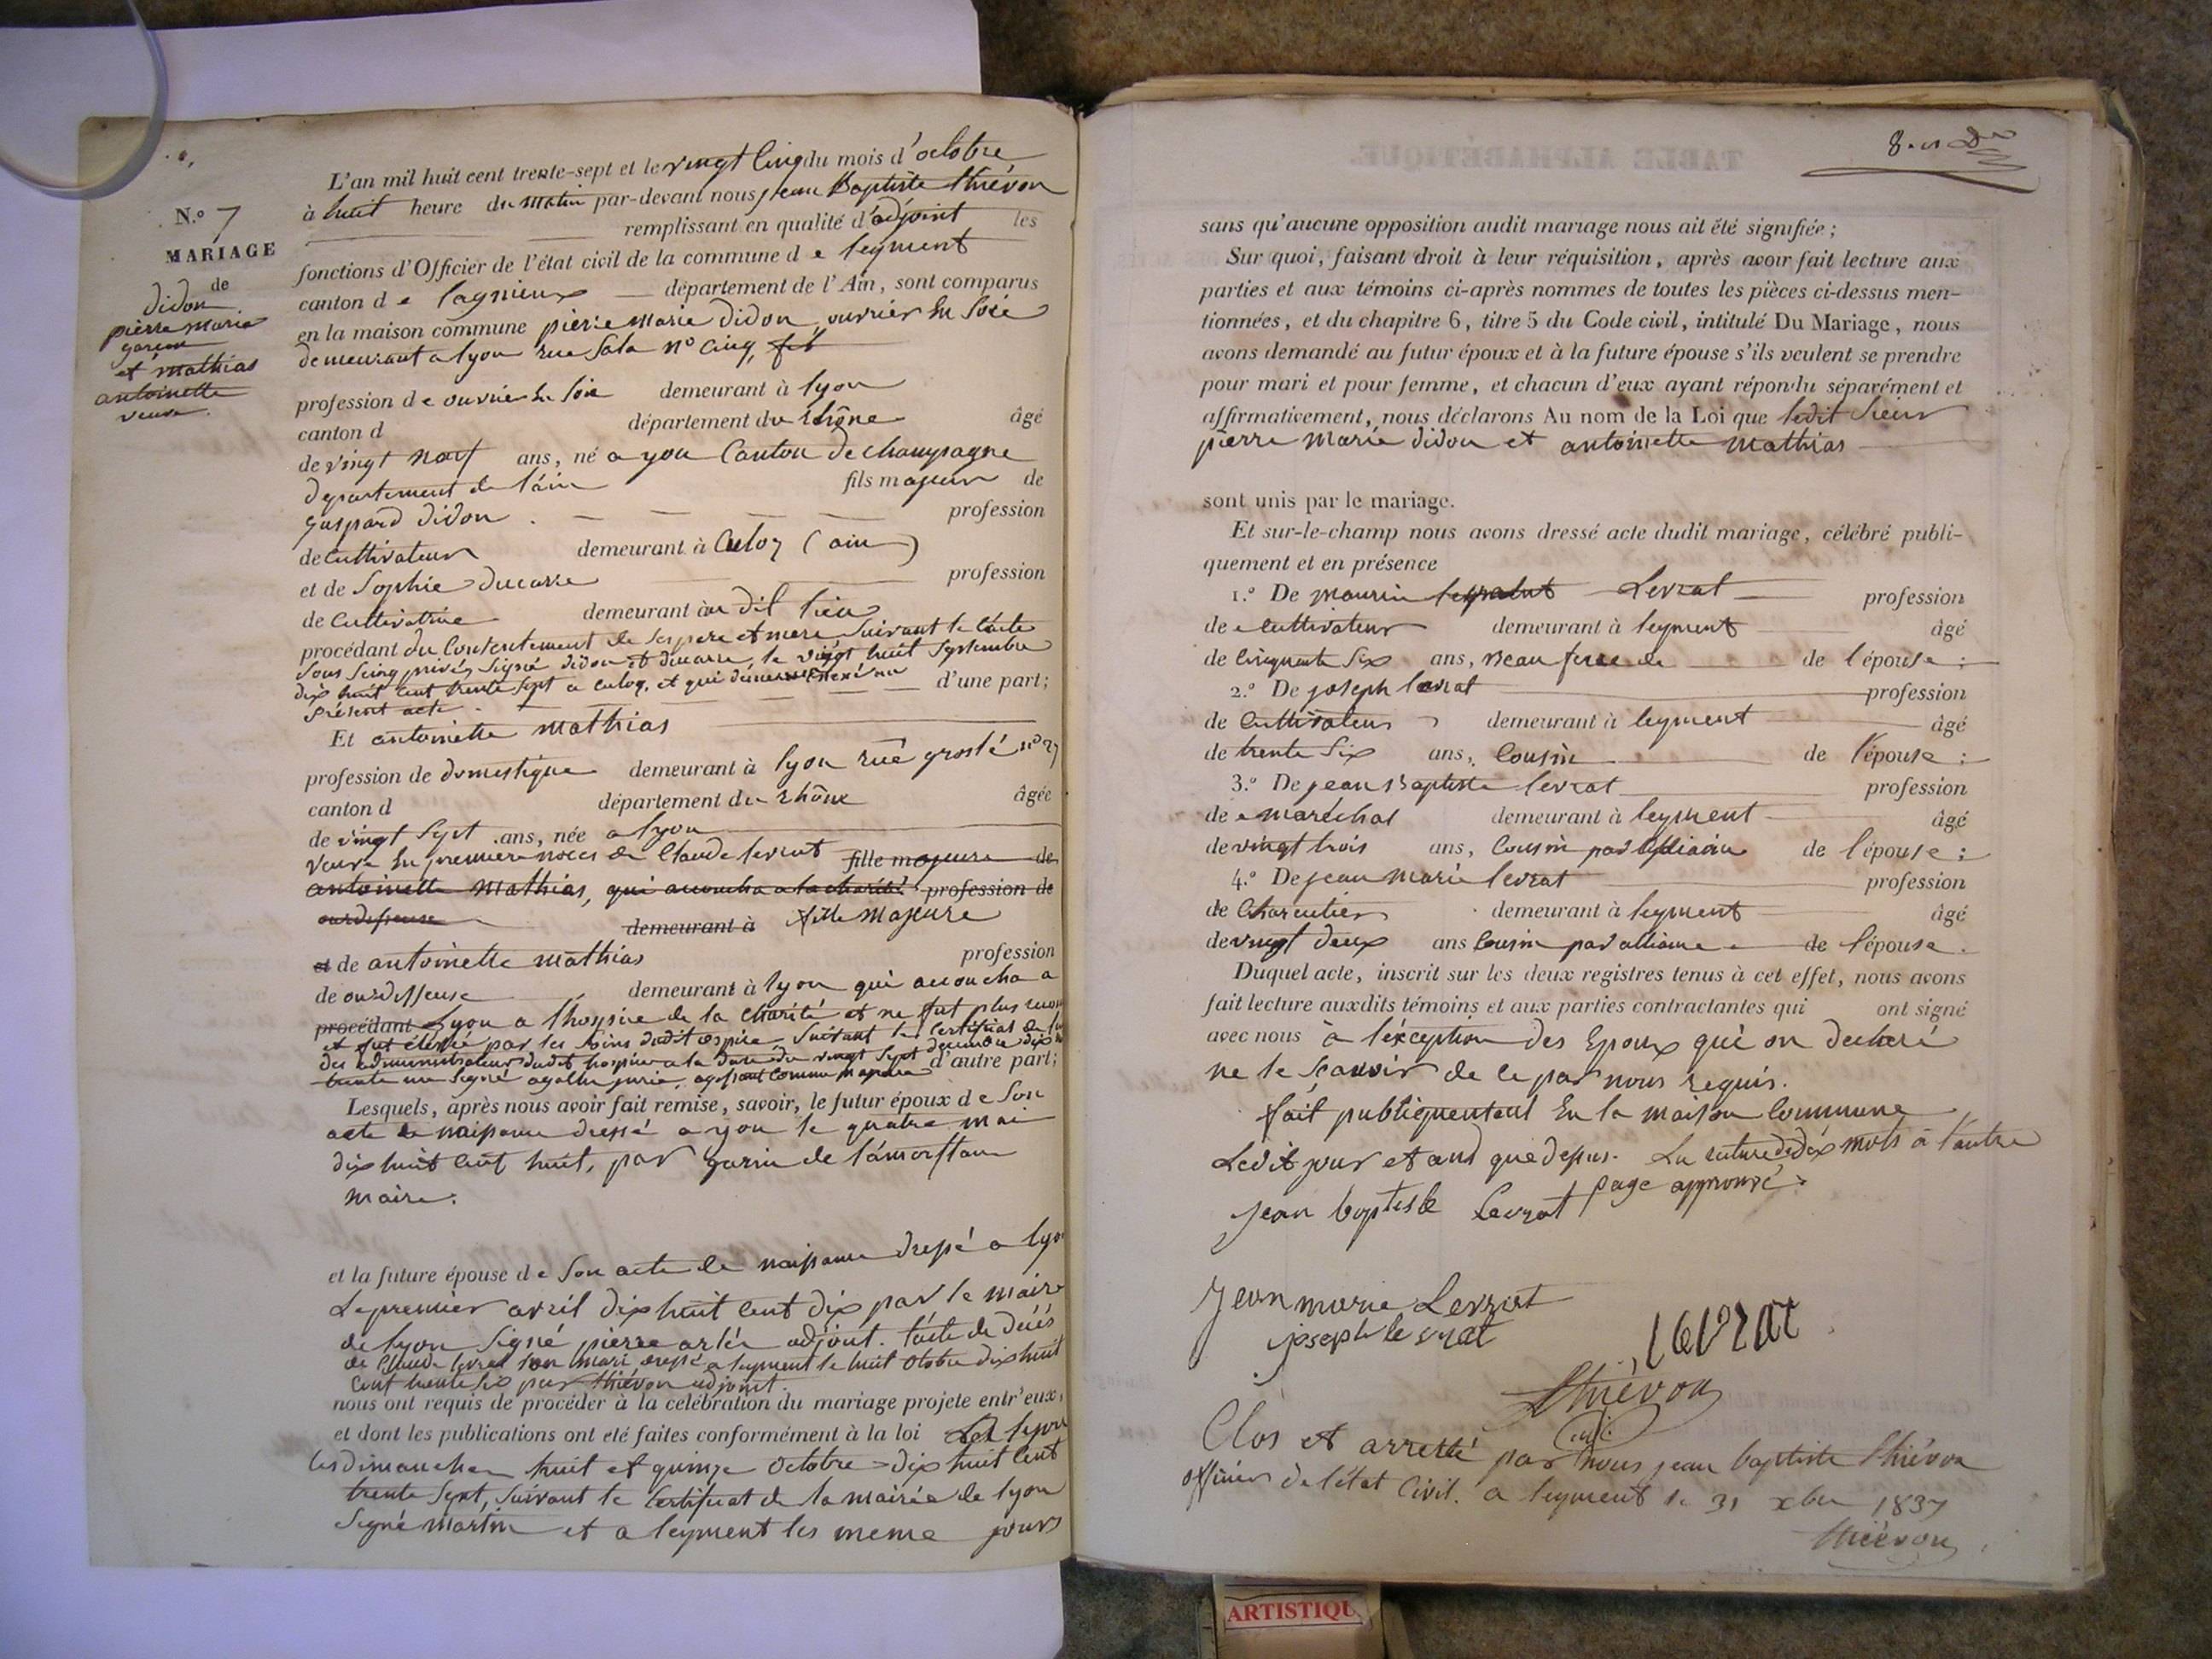 N.º 7
MARIAGE
de
didon
pierre marie
garcon
et mathias
antoinette
veuve.
L'an mil huit cent trente-sept et le vingt cinq du mois d'octobre
à huit heure du matin par-devant nous jean Baptiste thiévon
remplissant en qualité d'adjoint les
fonctions d'Officier de l'état civil de la commune de leyment
canton de lagnieux département de l'Ain, sont comparus
en la maison commune pierre marie didon ouvrier en soie
demeurant a lyon rue Sala nº cinq, fils
profession de ouvrier en soie demeurant à lyon
canton d département du rhône âgé
de vingt neuf ans, né a yon Canton de champagne
département de l'ain fils majeur de
gaspard didon profession
de Cultivateur demeurant à Culoz (ain)
et de Sophie ducarre profession
de Cultivatrice demeurant au dit lieu
procédant du Consentement de ses pere et mere suivant l'acte
sous seing privé, signé didon et ducarre, le vingt huit Septembre
dix huit cent trente sept a culoz, et qui demeure annexé au d'une part;
présent acte.
Et antoinette mathias
profession de domestique demeurant à lyon rue grolé nº 27
canton d département du rhône âgée
de vingt Sept ans, née a lyon
veuve en premiere noces de Claude levrat fille majeure de
antoinette mathias, qui accoucha a la charité profession de
ourdisseuse demeurant à fille majeure
et de antoinette mathias profession
de ourdisseuse demeurant à lyon qui accoucha a
procédant Lyon a l'hospice de la Charité et ne fut plus
et fut élevée par les soins dudit ospice suivant le certificat de
des administrateurs dudit hospice a la date du vingt sept décembre dix d'autre part;
trente un signé agissant comme majeure
Lesquels, après nous avoir fait remise, savoir, le futur époux de son
acte de naissance dressé a yon le quatre mai
dix huit cent huit, par garin de lamorflan
maire.
et la future épouse de son acte de naissance dressé a lyon
Le premier avril dix huit cent dix par le maire
de lyon signé pierre adjoint. l'acte de décès
de Claude levrat son mari dressé a leyment le huit octobre dix huit
cent trente six par thiévon adjoint.
nous ont requis de procéder à la célébration du mariage projeté entr'eux,
et dont les publications ont été faites conformément à la loi a lyon
les dimanches huit et quinze octobre dix huit cent
trente sept, suivant le certificat de la mairie de lyon
signé martin et a leyment les meme jours
sans qu'aucune opposition audit mariage nous ait été signifiée;
Sur quoi, faisant droit à leur réquisition, après avoir fait lecture aux
parties et aux témoins ci-après nommés de toutes les pièces ci-dessus men-
tionnées, et du chapitre 6, titre 5 du Code civil, intitulé Du Mariage, nous
avons demandé au futur époux et à la future épouse s'ils veulent se prendre
pour mari et pour femme, et chacun d'eux ayant répondu séparément et
affirmativement, nous déclarons Au nom de la Loi que ledit sieur
pierre marie didon et antoinette mathias
sont unis par le mariage.
Et sur-le-champ nous avons dressé acte dudit mariage, célébré publi-
quement et en présence
1.º De maurin Levrat profession
de cultivateur demeurant à leyment âgé
de cinquante six ans, beau frere de de l'épouse;
2.º De joseph levrat profession
de Cultivateur demeurant à leyment âgé
de trente six ans, Cousin de l'épouse;
3.º De jean Baptiste levrat profession
de maréchal demeurant à leyment âgé
de vingt trois ans, Cousin par alliance de l'épouse;
4.º De jean marie levrat profession
de Charcutier demeurant à leyment âgé
de vingt deux ans Cousin par alliance de l'épouse.
Duquel acte, inscrit sur les deux registres tenus à cet effet, nous avons
fait lecture auxdits témoins et aux parties contractantes qui ont signé
avec nous à l'exception des Epoux qui on declaré
ne le sçavoir de ce par nous requis.
fait publiquement En la maison Commune
Ledit jour et and que dessus. La rature de dix mots à l'autre
page approuvé.
jean baptiste Levrat
Jean marie Levrat
joseph levrat
levrat
thiévon
Clos et arretté par nous jean baptiste thiévon
officier de l'état Civil. a leyment le 31 xbre 1837
thiévon
ARTISTIQU